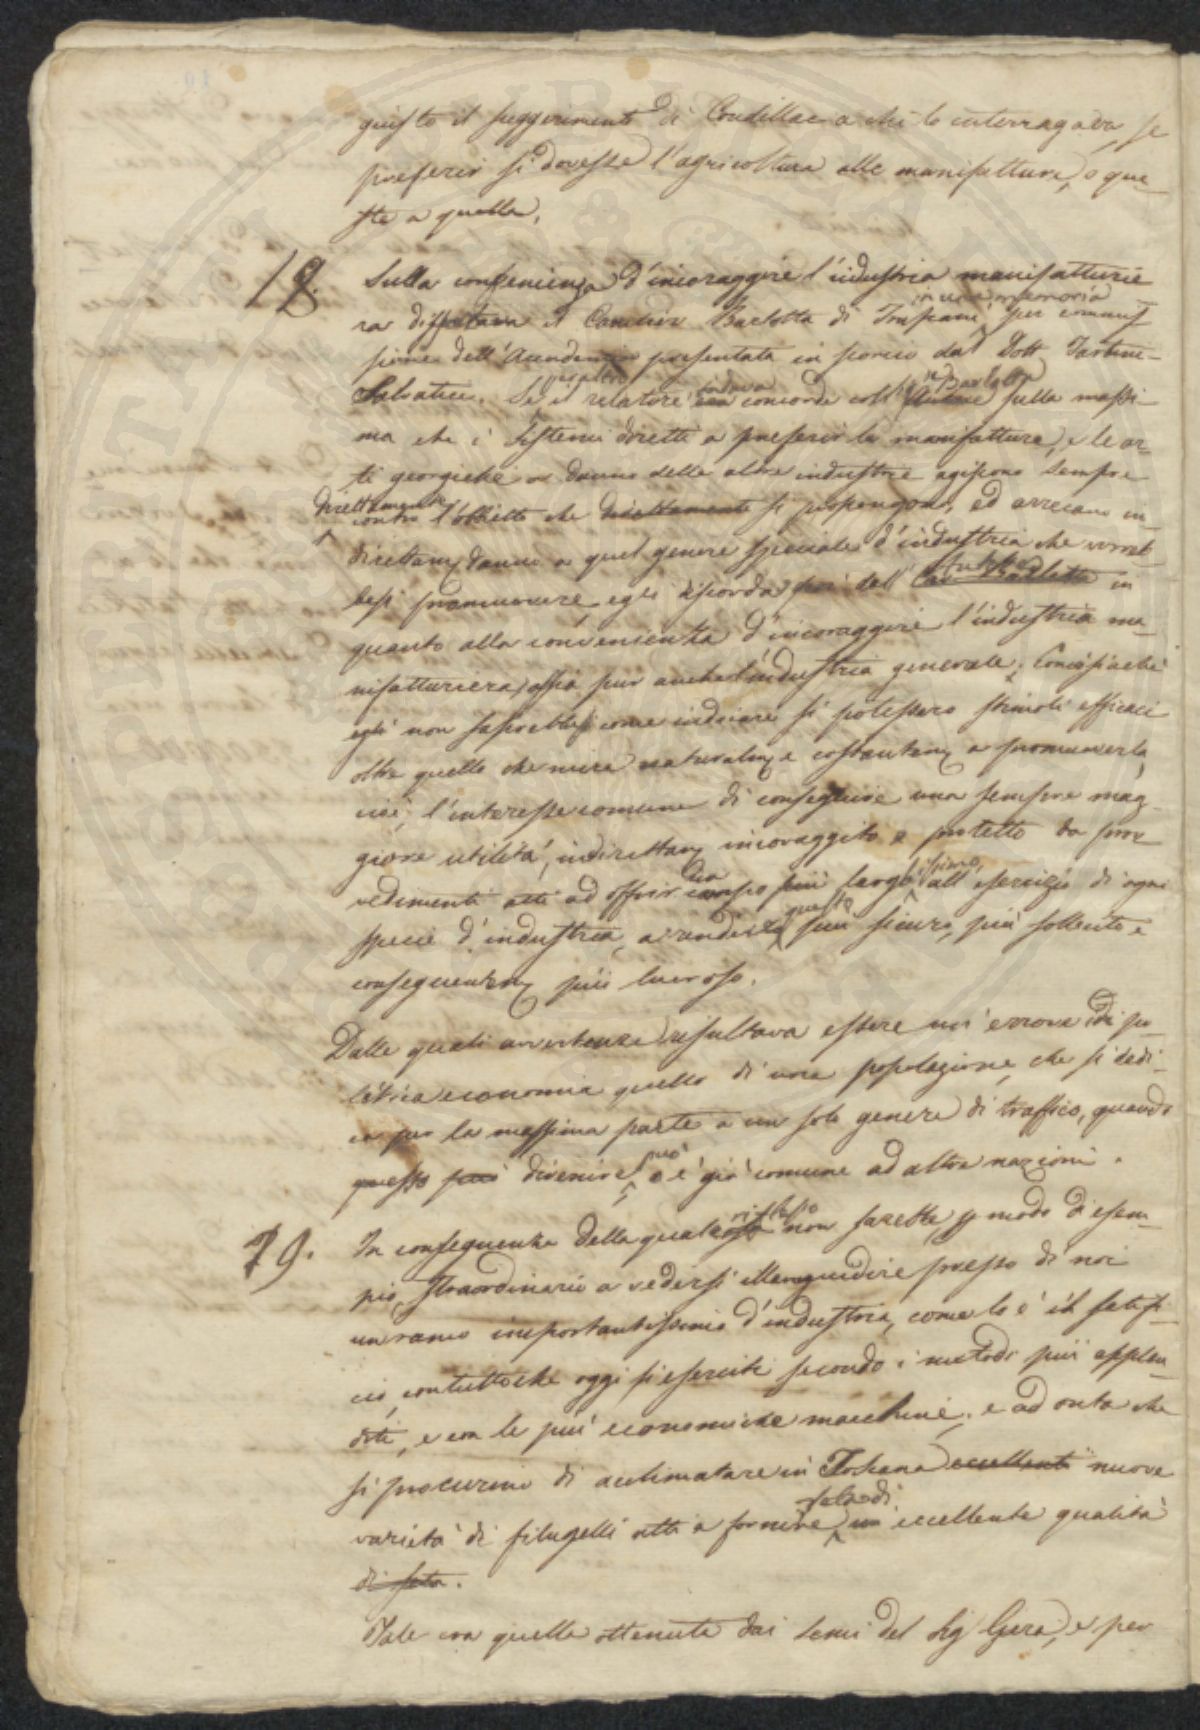 giusto il suggerimento di Condillac a chi lo interrogava, se
preferir si dovesse l'agricoltura alle manifatture, o que-
ste a quella.
18. Sulla convenienza d'incoraggire l'industria manifatturie
ra disputava il Cavalier Barlotta di Trapani in una memoria per commis-
sione dell'Accademia presentata in sunto dal Dott. Tartini-
Salvatici. Se il relatore andava concorde coll' Autore Barlotta sulla massi-
ma che i sistemi diretti a preferir le manifatture, e le ar-
ti georgiche a danno delle altre industrie agiscono sempre
direttamente contro l'obbietto che direttamente si propongono, ed arrecano in-
direttam. danno a quel genere speciale d'industria che vorreb-
besi promuovere, egli discordava poi dall' Autore Cav. Barlotta in
quanto alla convenienza d'incoraggire l'industria ma-
nifatturiera, ossia pur anche l'industria generale. Conciosiachè
egli non saprebbe come indicare si potessero stimoli efficaci
oltre quello che mira naturalm. e costantem. a promuoverla,
cioè, l'interesse comune di conseguire una sempre mag-
giore utilità, indirettam. incoraggito e protetto da prov
vedimenti atti ad offrir campo più largo all' esercizio di ogni
specie d'industria, a renderlo questo più sicuro, più sollecito e
conseguentem. più lucroso.
Dalle quali avvertenze risultava essere un' errore di po-
litica economia quello di una popolazione, che si dedi-
ca per la massima parte a un solo genere di traffico, quando
questo può divenire, o è già comune ad altre nazioni.
19. In conseguenza della qual cosa riflesso non sarebbe p modo di esem-
pio, straordinario a vedersi illanguidire presso di noi
un ramo importantissimo d'industria, come lo è il setifi-
cio, contuttochè oggi si eserciti secondo i metodi più applau
diti, e con le più economiche macchine; e ad onta che
si procurino di acclimatare in Toscana eccellenti nuove
varietà di filugelli atti a fornire seta di un eccellente qualità
di seta.
Tale era quella ottenuta dai semi del Sig Gera, e per